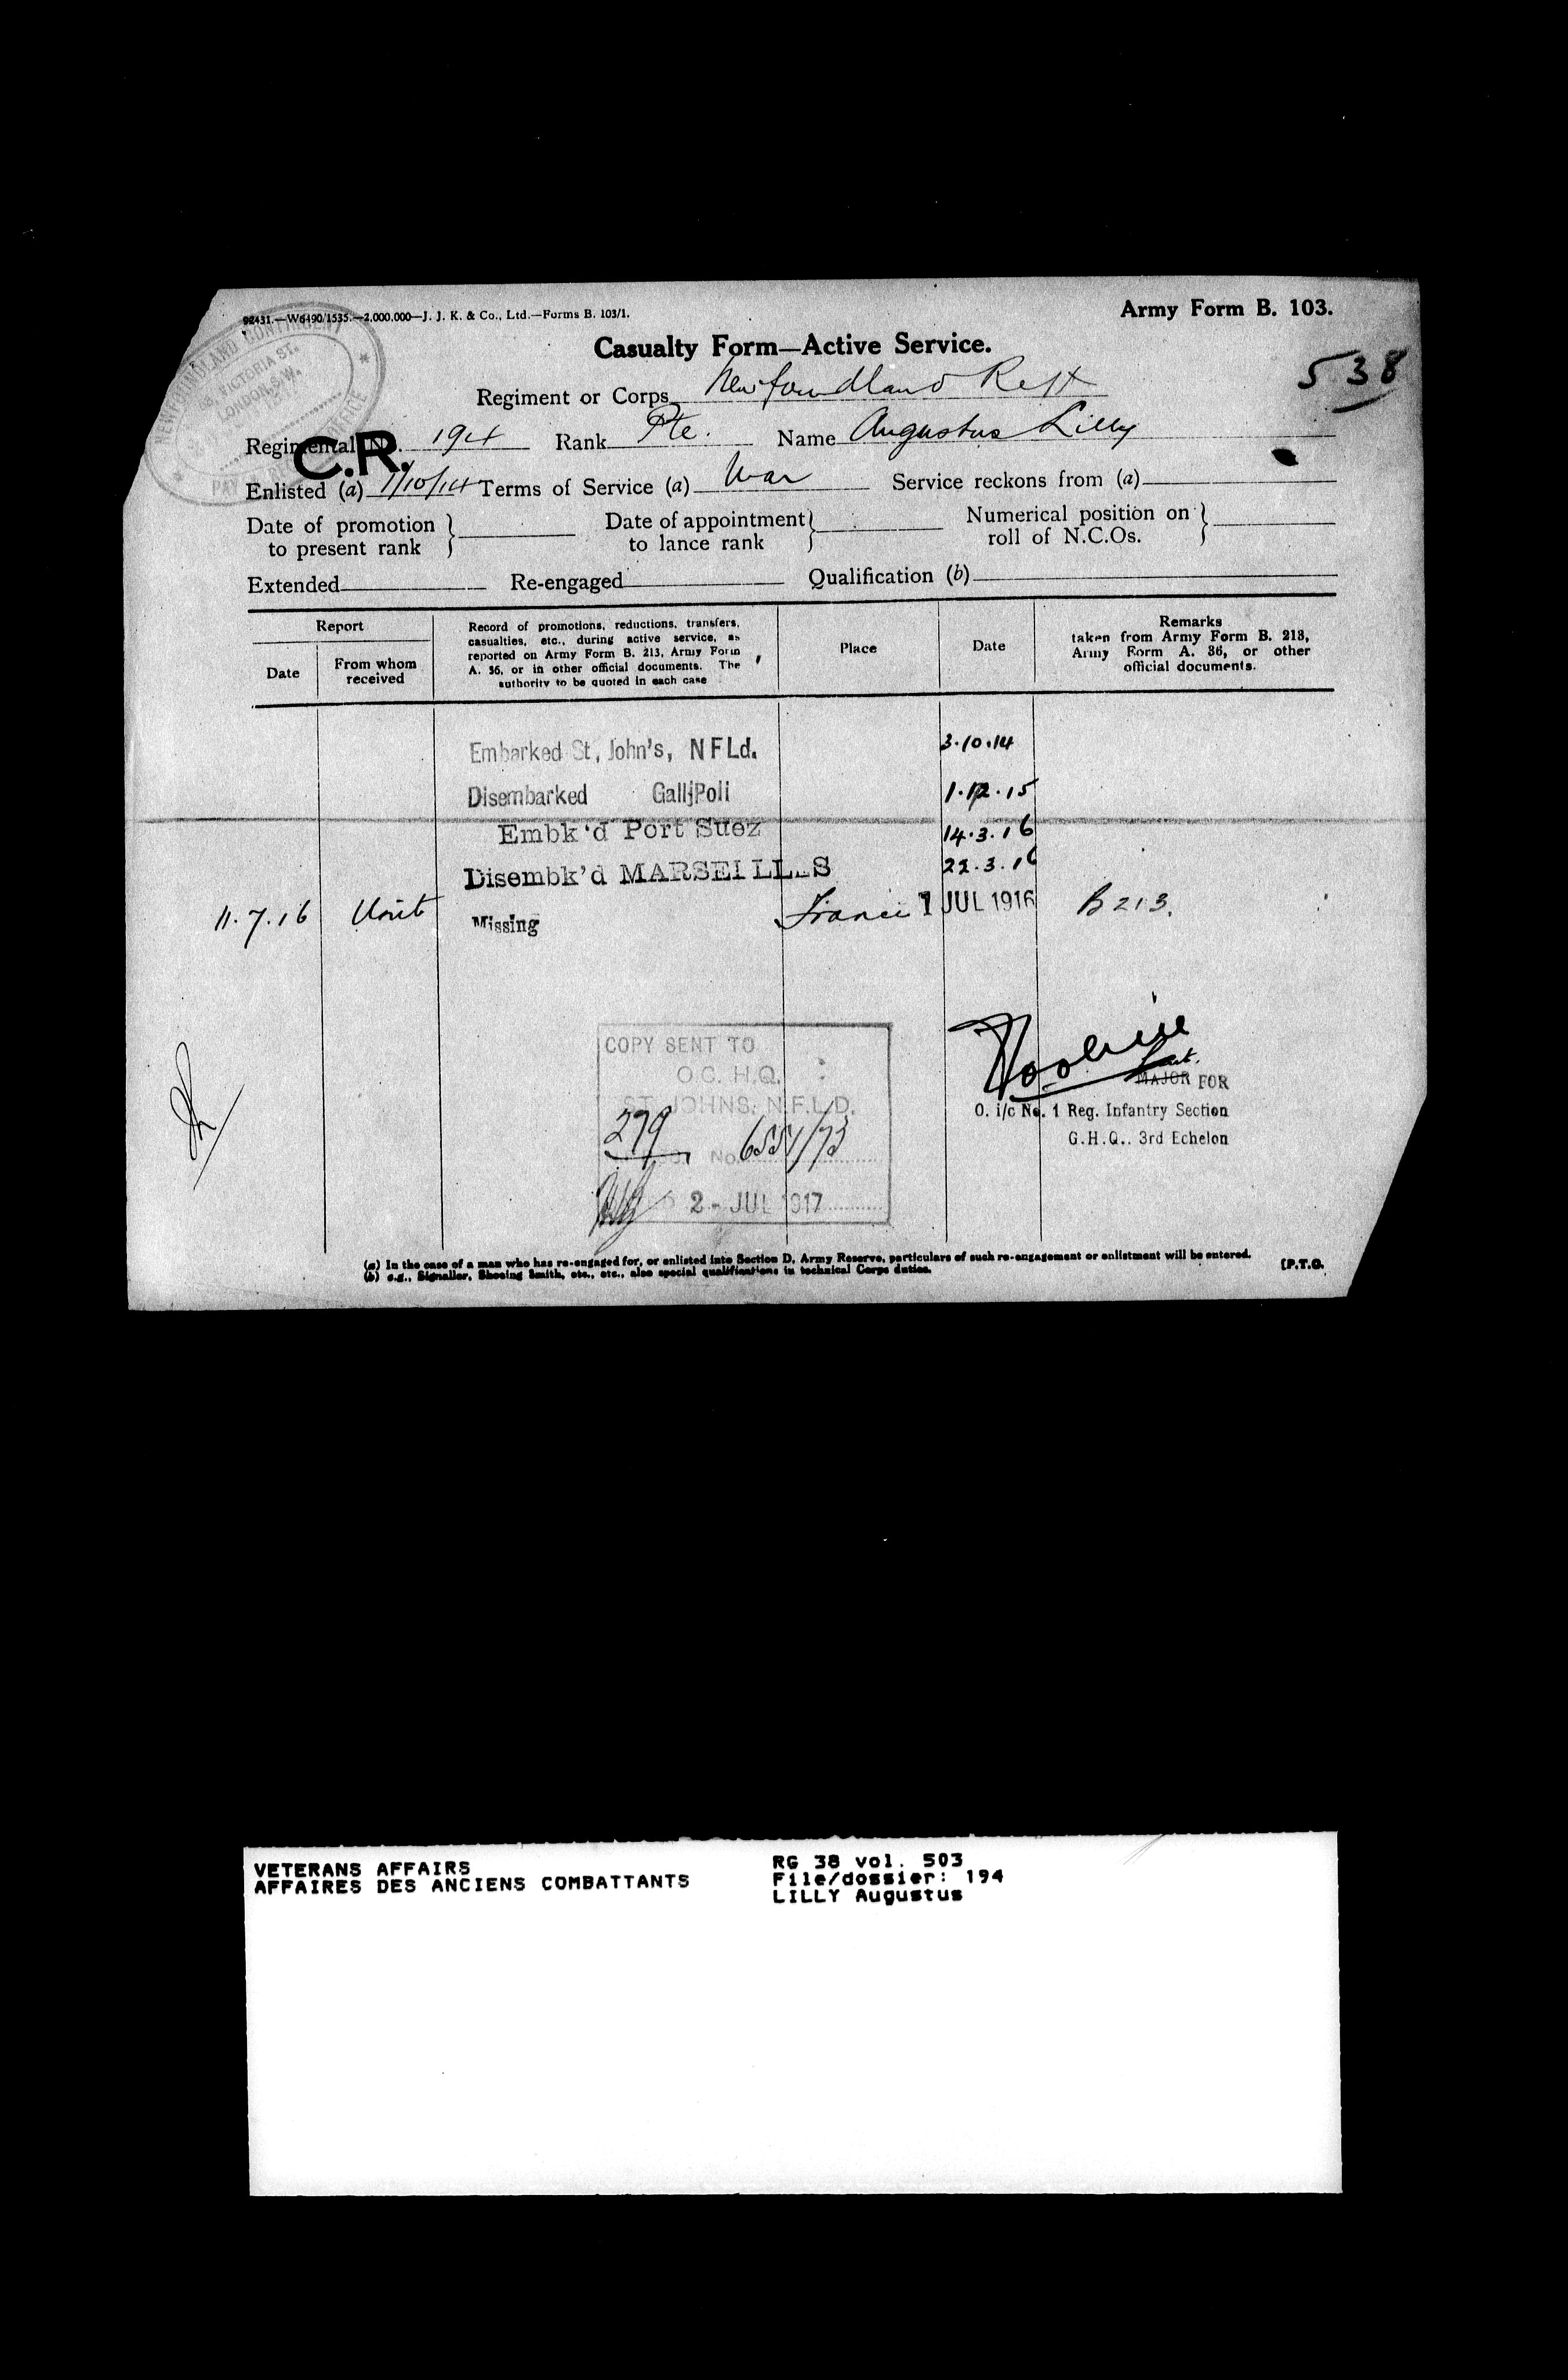 92431.—W6490/1535.—2,000,000—J. J. K. & Co., Ltd.—Forms B. 103/1.
Army Form B. 103.
Casualty Form—Active Service.
538
Regiment or Corps Newfoundland Regt
NEWFOUNDLAND CONTINGENT
VICTORIA ST.
LONDON, S.W.
PAY & RECORD OFFICE
C.R.
Regimental No. 194 Rank Pte. Name Augustus Lilly
Enlisted (a) 1/10/14 Terms of Service (a) War Service reckons from (a)
Date of promotion to present rank } Date of appointment to lance rank } Numerical position on roll of N.C.Os. }
Extended Re-engaged Qualification (b)
Report
Date
From whom received
Record of promotions, reductions, transfers,
casualties, etc., during active service, as
reported on Army Form B. 213, Army Form
A. 36, or in other official documents. The
authority to be quoted in each case
Place
Date
Remarks
taken from Army Form B. 213,
Army Form A. 36, or other
official documents.
Embarked St, John's, NFLd. 3.10.14
Disembarked GalljPoli 1.12.15
Embk'd Port Suez 14.3.16
Disembk'd MARSEILLES 22.3.16
11.7.16 Unit Missing France 1 JUL 1916 B213.
COPY SENT TO
O.C. H.Q.
ST. JOHNS. N.F.L.D.
279 No. 6551/73
2 - JUL 1917
Lieut.
MAJOR FOR
O. i/c No. 1 Reg. Infantry Section
G.H.Q.. 3rd Echelon
(a) In the case of a man who has re-engaged for, or enlisted into Section D, Army Reserve, particulars of such re-engagement or enlistment will be entered.
(b) e.g., Signaller, Shoeing Smith, etc., etc., also special qualifications in technical Corps duties.
[P.T.O.
VETERANS AFFAIRS
AFFAIRES DES ANCIENS COMBATTANTS
RG 38 vol. 503
File/dossier: 194
LILLY Augustus